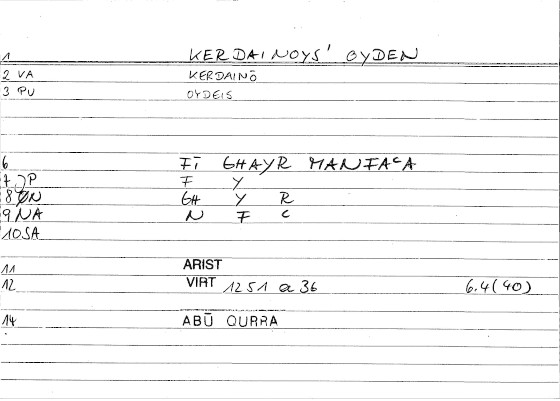 1 KERDAINOYS' OYDEN
2 VA KERDAINŌ
3 PU OYDEIS
6 FĪ GHAYR MANFAʿA
7 JP F Y
8 ØN GH Y R
9 NA N F ʿ
10 SA
11 ARIST
12 VIRT 1251 a 36 6.4(40)
14 ABŪ QURRA